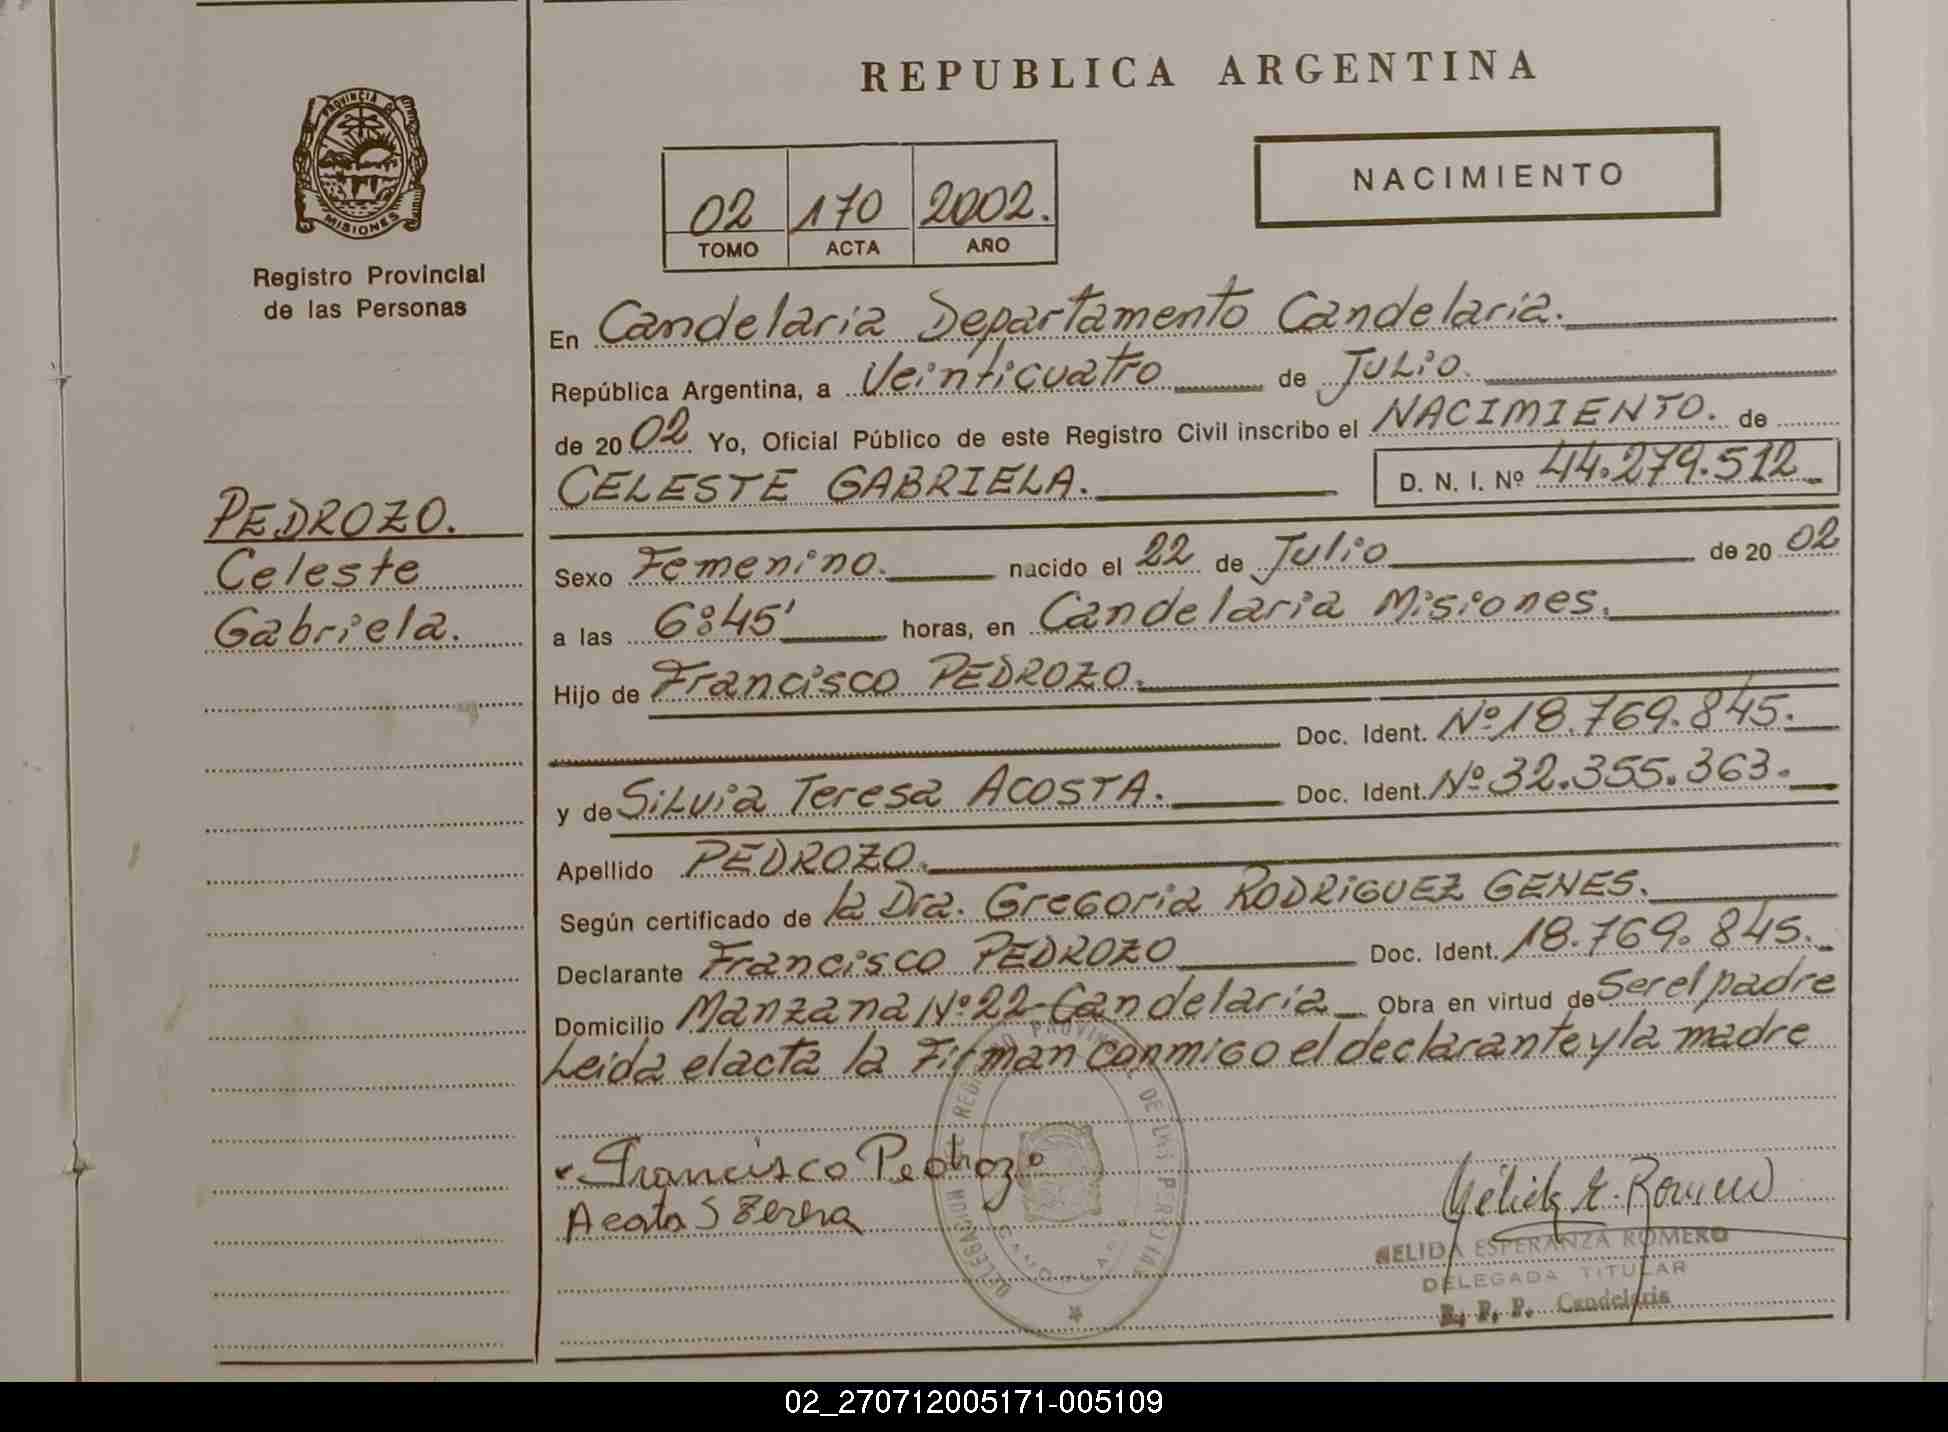 REPUBLICA ARGENTINA
PROVINCIA DE
MISIONES
Registro Provincial
de las Personas
02 170 2002.
TOMO ACTA AÑO
NACIMIENTO
PEDROZO.
Celeste
Gabriela.
En Candelaria Departamento Candelaria.
República Argentina, a Veinticuatro de Julio.
de 20 02 Yo, Oficial Público de este Registro Civil inscribo el NACIMIENTO. de
CELESTE GABRIELA. D. N. I. Nº 44.279.512
Sexo Femenino. nacido el 22 de Julio de 20 02
a las 6:45' horas, en Candelaria Misiones.
Hijo de Francisco PEDROZO.
Doc. Ident. Nº 18.769.845.
y de Silvia Teresa ACOSTA. Doc. Ident. Nº 32.355.363.
Apellido PEDROZO.
Según certificado de la Dra. Gregoria RODRIGUEZ GENES.
Declarante Francisco PEDROZO Doc. Ident. 18.769.845.
Domicilio Manzana Nº 22-Candelaria Obra en virtud de Ser el padre
Leida el acta la Firman conmigo el declarante y la madre
Francisco Pedrozo
NELIDA ESPERANZA ROMERO
DELEGADA TITULAR
R. P. P. Candelaria
02_270712005171-005109